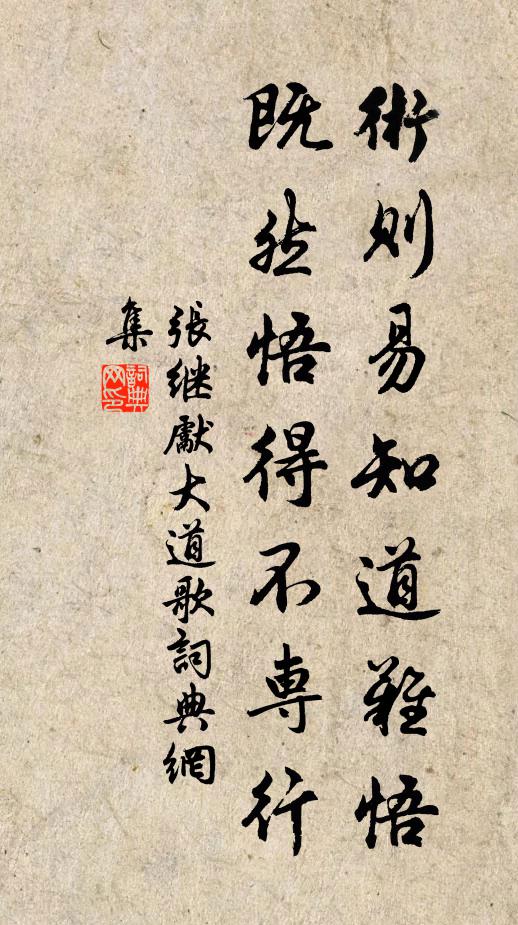 術則易知道難悟
既然悟得不専行
張継獻大道歌詞典網
集
詞典
网印